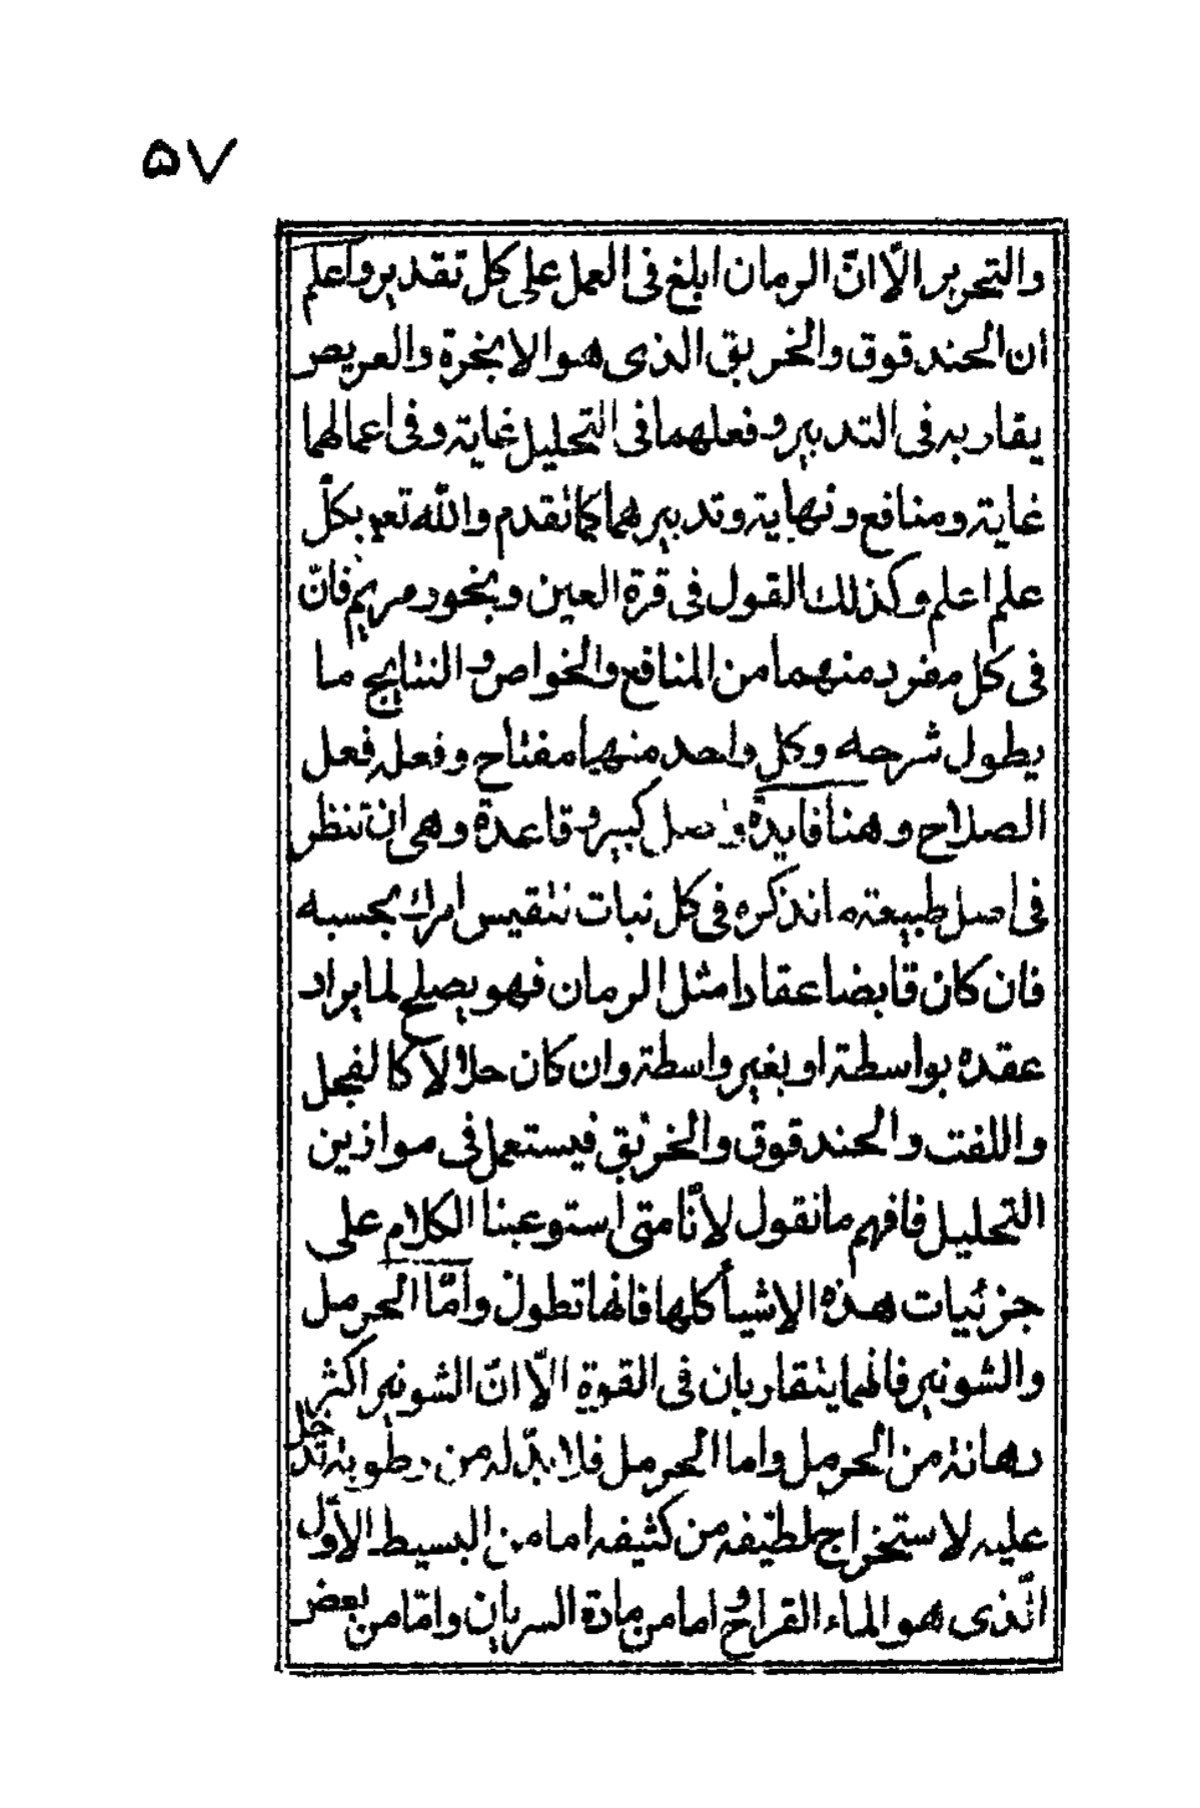 ۵۷
والتحرير الّا انّ الرمان ابلغ فى العمل على كل تقدير واعلم
ان الحندقوق والخربق الذى هوالانجرة والعريص
يقاربه فى التدبير وفعلهما فى التحليل غاية وفى اعمالهما
غاية ومنافع ونهاية وتدبيرهما كما تقدم والله تعم بكل
علم اعلم وكذلك القول فى قرة العين وبخور مريم فانّ
فى كل مفرد منهما من المنافع والخواص والنتايج ما
يطول شرحه وكل واحد منهما مفتاح وفعله فعل
الصلاح وهنا فايدة واصل كبير وقاعدة وهى ان تنظر
فى اصل طبيعته ما نذكره فى كل نبات نتقيس امرك بحسبه
فان كان قابضا عقادا مثل الرمان فهو يصلح لما يراد
عقده بواسطة او بغير واسطة وان كان حلالا كالفجل
واللفت والحندقوق والخربق فيستعمل فى موازين
التحليل فافهم ما نقول لانّا متى استوعبنا الكلام على
جزئيات هذه الاشيأ كلها فانها تطول وامّا الحرمل
والشونير فانهما يتقاربان فى القوة الّا انّ الشونير اكثر
دهانة من الحرمل واما الحرمل فلا بدّ له من رطوبة تدخل
عليه لاستخراج لطيفه من كثيفه اما من البسيط الاوّل
الّذى هو الماء القراح واما من مادة السريان وامّا من بعض